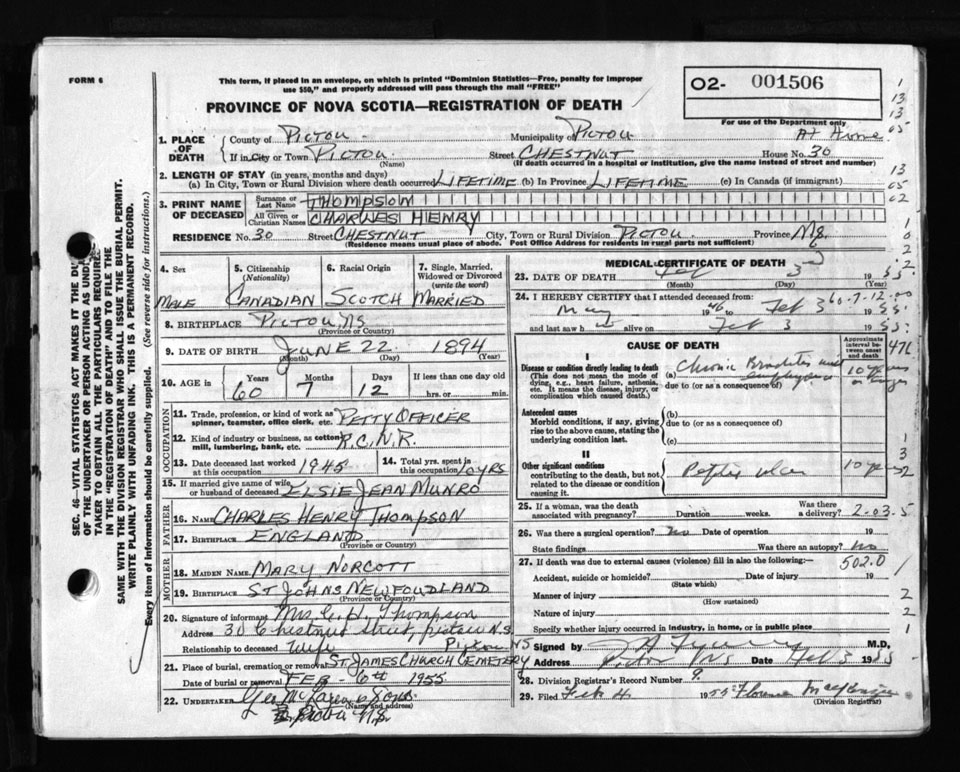 FORM 6
This form, if placed in an envelope, on which is printed "Dominion Statistics—Free, penalty for improper
use $50," and properly addressed will pass through the mail "FREE"
PROVINCE OF NOVA SCOTIA—REGISTRATION OF DEATH
O2- 001506
For use of the Department only
1. PLACE OF DEATH
County of PICTOU. Municipality of PICTOU At Home
If in City or Town PICTOU. (Name) Street CHESTNUT House No. 30
(If death occurred in a hospital or institution, give the name instead of street and number)
2. LENGTH OF STAY (in years, months and days)
(a) In City, Town or Rural Division where death occurred LIFETIME (b) In Province LIFETIME (c) In Canada (if immigrant)
3. PRINT NAME OF DECEASED
Surname or Last Name THOMPSON
All Given or Christian Names CHARLES HENRY
RESIDENCE No. 30 Street CHESTNUT City, Town or Rural Division PICTOU Province N.S.
(Residence means usual place of abode. Post Office Address for residents in rural parts not sufficient)
4. Sex MALE
5. Citizenship (Nationality) CANADIAN
6. Racial Origin SCOTCH
7. Single, Married, Widowed or Divorced (write the word) MARRIED
8. BIRTHPLACE PICTOU, N.S.
(Province or Country)
9. DATE OF BIRTH JUNE 22 1894
(Month) (Day) (Year)
10. AGE in Years Months Days If less than one day old
60 7 12 hrs. or min.
OCCUPATION
11. Trade, profession, or kind of work as spinner, teamster, office clerk. etc. PETTY OFFICER
12. Kind of industry or business, as cotton mill, lumbering, bank, etc. R.C.N.R.
13. Date deceased last worked at this occupation 1945
14. Total yrs. spent in this occupation 10 YRS
15. If married give name of wife or husband of deceased ELSIE JEAN MUNRO
FATHER
16. NAME CHARLES HENRY THOMPSON
17. BIRTHPLACE ENGLAND.
(Province or Country)
MOTHER
18. MAIDEN NAME MARY NORCOTT
19. BIRTHPLACE ST JOHNS NEWFOUDLAND
(Province or Country)
20. Signature of informant Mrs. C. H. Thompson
Address 30 Chestnut Street, pictou N.S.
Relationship to deceased Wife Pictou NS
21. Place of burial, cremation or removal ST. JAMES CHURCH CEMETERY
Date of burial or removal FEB - 6th 1955
22. UNDERTAKER Geo McLaren & Sons
(Name and address)
Pictou N.S.
MEDICAL CERTIFICATE OF DEATH
23. DATE OF DEATH Feb 3 1955.
(Month) (Day) (Year)
24. I HEREBY CERTIFY that I attended deceased from: 60-7-12-00
May 1946 to Feb 3 1955
and last saw h alive on Feb 3 1955.
CAUSE OF DEATH
Approximate interval between onset and death
I
Disease or condition directly leading to death
(This does not mean the mode of dying, e.g., heart failure, asthenia, etc. It means the disease, injury, or complication which caused death.)
(a) Chronic Bronchitis and emphysema 10 years or longer
due to (or as a consequence of)
Antecedent causes
Morbid conditions, if any, giving rise to the above cause, stating the underlying condition last.
(b)
due to (or as a consequence of)
(c)
II
Other significant conditions contributing to the death, but not related to the disease or condition causing it.
Peptic ulcer 10 years
25. If a woman, was the death associated with pregnancy? Duration weeks. Was there a delivery? 2-03-5
26. Was there a surgical operation? No Date of operation 19
State findings Was there an autopsy? No
27. If death was due to external causes (violence) fill in also the following: 502.0
Accident, suicide or homicide? Date of injury 19
(State which)
Manner of injury
(How sustained)
Nature of injury
Specify whether injury occurred in industry, in home, or in public place
Signed by M.D,
Address Pictou N.S. Date Feb 3 1955
28. Division Registrar's Record Number 9.
29. Filed Feb 4 1955 Florence
(Division Registrar)
SEC. 46—VITAL STATISTICS ACT MAKES IT THE DU
OF THE UNDERTAKER OR PERSON ACTING AS UND
TAKER TO OBTAIN ALL THE PARTICULARS REQUIRE
IN THE "REGISTRATION OF DEATH" AND TO FILE THE
SAME WITH THE DIVISION REGISTRAR WHO SHALL ISSUE THE BURIAL PERMIT.
WRITE PLAINLY WITH UNFADING INK. THIS IS A PERMANENT RECORD.
Every item of information should be carefully supplied. (See reverse side for instructions.)